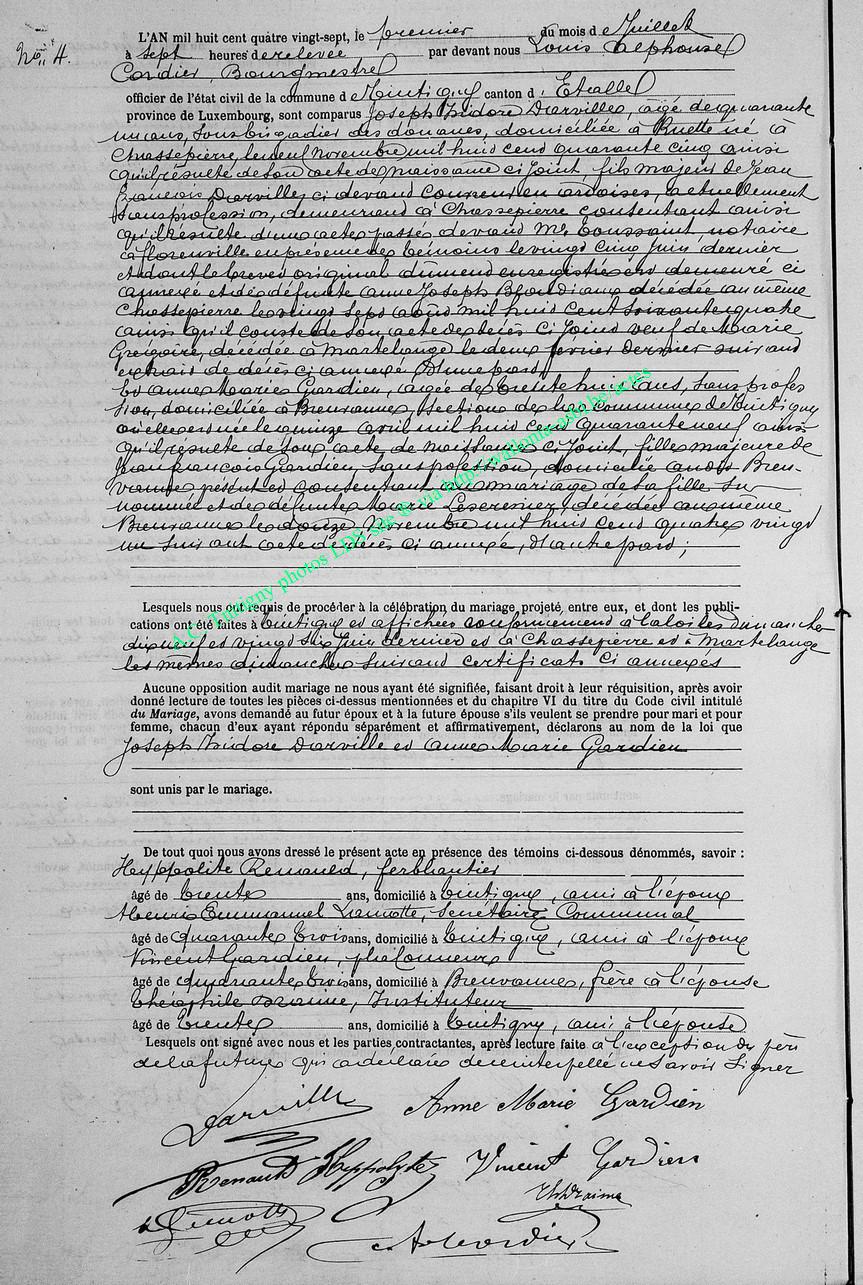 No. 4.
L'AN mil huit cent quatre vingt-sept, le premier du mois de Juillet
à sept heures de relevée par devant nous Louis Alphonse
Cordier, Bourgmestre
officier de l'état civil de la commune de Tintigny canton d'Etalle
province de Luxembourg, sont comparus Joseph Isidore Darville, agé de quarante
un ans, sous brigadier des douanes, domiciliée à Ruette né à
Chassepierre, le neuf Novembre mil huit cent quarante cinq ainsi
qu'il résulte de son acte de naissance ci joint, fils majeur de Jean
François Darville, ci devant couvreur en ardoises, actuellement
sans profession, demeurant à Chassepierre consentant ainsi
qu'il résulte d'une acte passée devant Me Toussaint, notaire
à florenville en présence de témoins le vingt cinq Juin dernier
et dont le brevet original dûment enregistrée est demeuré ci
annexé et de défunte Anne Joseph décédée au même
Chassepierre le vingt sept août mil huit cent soixante quatre
ainsi qu'il conste de son acte de décès ci joint veuf de Marie
Grégoire, décédée à Martelange le deux février dernier suivant
extrait de décès ci annexé d'une part,
Et Anne Marie Gardien, agée de trente huit ans, sans profes
sion, domiciliée à Breuvanne, section de la commune de Tintigny
où elle est née le quinze avril mil huit cent quarante neuf ainsi
qu'il résulte de son acte de naissance ci joint, fille majeure de
Jean francois Gardien, sans profession, domicilié audit Breu-
vanne présent et consentant au mariage de sa fille sus
nommée et de défunte Marie décédée au même
Breuvanne le douze Novembre mil huit cent quatre vingt
un suivant acte de décès ci annexé, d'autre part;
Lesquels nous ont requis de procéder à la célébration du mariage projeté entre eux, et dont les publi-
cations ont été faites à Tintigny et affichées conformément à la loi les dimanches
dix neuf et vingt six Juin dernier et à Chassepierre et à Martelange
les mêmes dimanches suivant certificats ci annexés
Aucune opposition audit mariage ne nous ayant été signifiée, faisant droit à leur réquisition, après avoir
donné lecture de toutes les pièces ci-dessus mentionnées et du chapitre VI du titre du Code civil intitulé
du Mariage, avons demandé au futur époux et à la future épouse s'ils veulent se prendre pour mari et pour
femme, chacun d'eux ayant répondu séparément et affirmativement, déclarons au nom de la loi que
Joseph Isidore Darville et Anne Marie Gardien
sont unis par le mariage.
De tout quoi nous avons dressé le présent acte en présence des témoins ci-dessous dénommés, savoir :
Hyppolite Renauld, ferblantier
âgé de trente ans, domicilié à Tintigny, ami à l'époux
Henri Emmanuel Lamotte, Secrétaire Communal
âgé de quarante trois ans, domicilié à Tintigny, ami à l'époux
Vincent Gardien, plafonneur
âgé de quarante trois ans, domicilié à Breuvanne, frère à l'épouse
Théophile Draime, Instituteur
âgé de trente ans, domicilié à Tintigny, ami à l'épouse
Lesquels ont signé avec nous et les parties contractantes, après lecture faite à l'exception du père
de la future qui a déclaré de ce interpellé ne savoir signer
Darville Anne Marie Gardien
Renauld Hippolyte Vincent Gardien
Lamotte Th Draime
A Cordier
A.C. Tintigny photos LDS site & via http://wallonia-asbl.be/actes